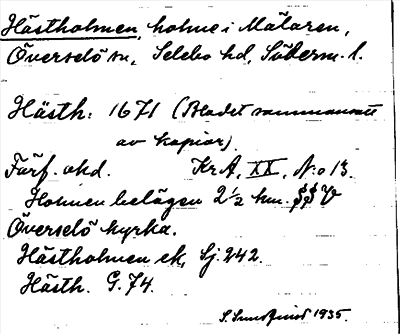 Hästholmen, holme i Mälaren,
Överselö sn, Selebo hd, Söderm. l.
Hästh: 1671 (Bladet sammansatt
av kopior)
Förf. okd. Kr A, XX, N:o 13.
Holmen belägen 2 ½ km. V
Överselö kyrka.
Hästholmen ek, Sj. 242.
Hästh. G. 74.
S. Sundqvist 1935.